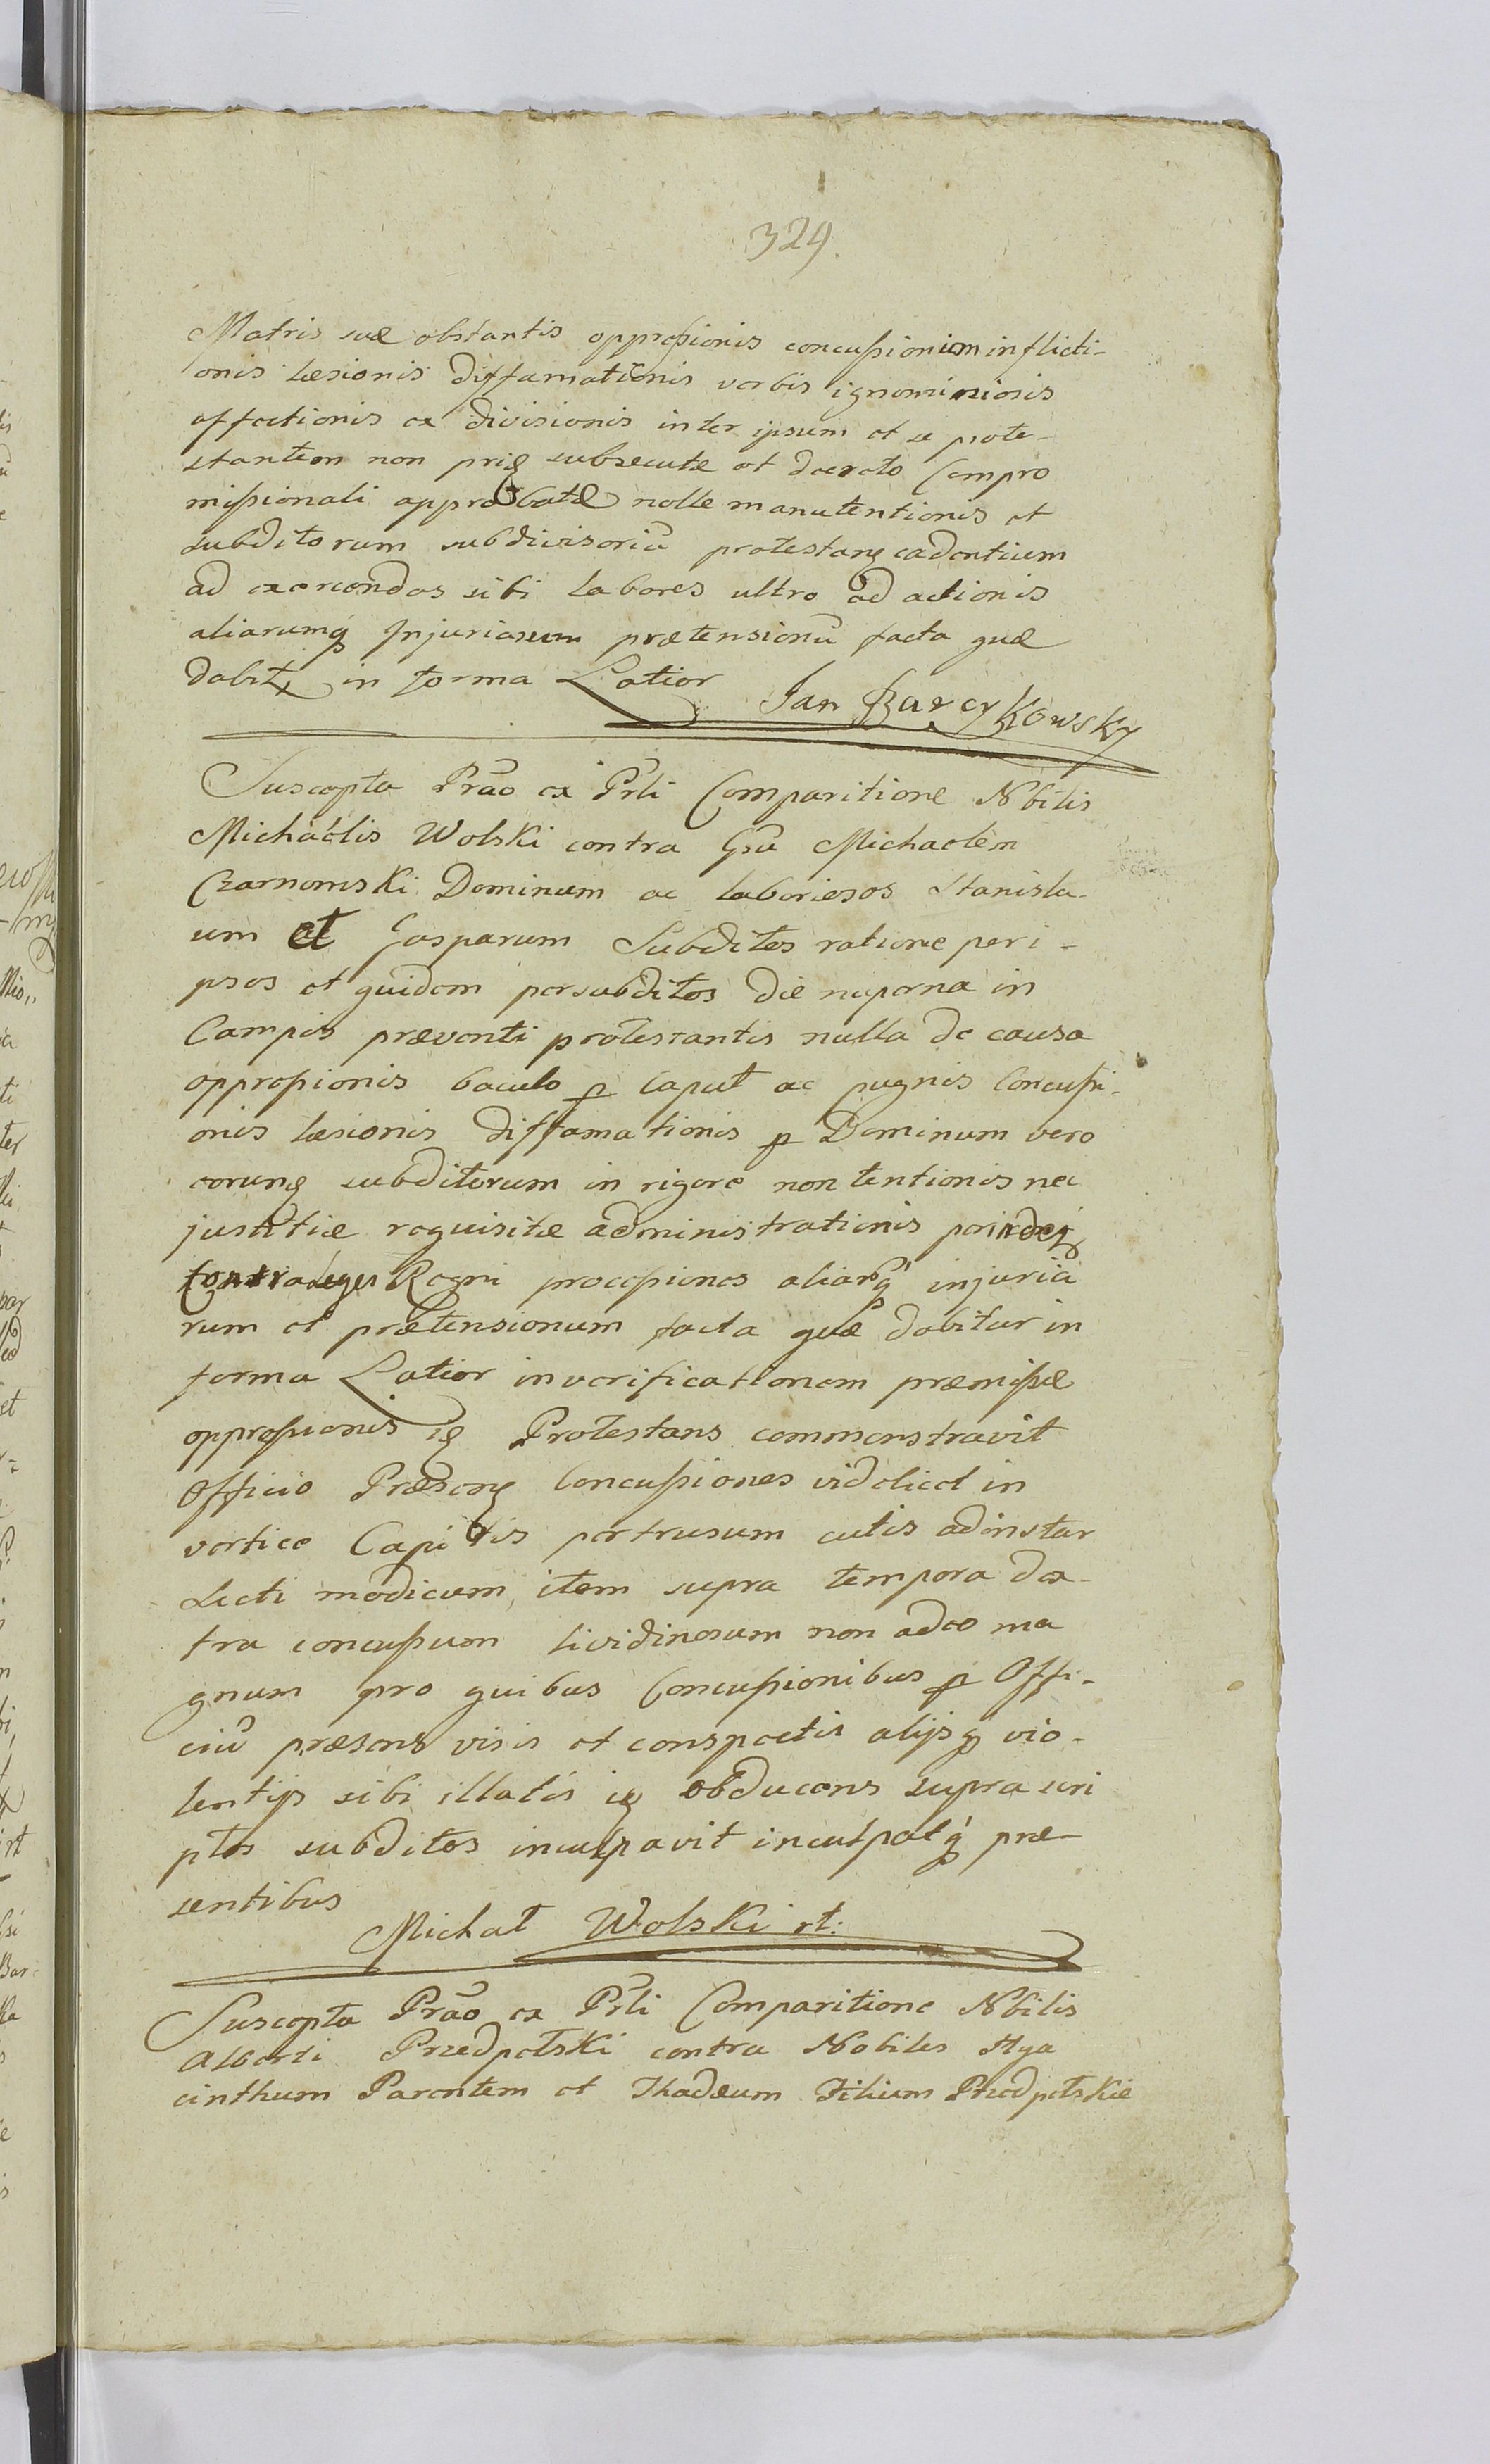 329.
Matris suæ obstantis oppressionis concussionium inflicti-
onis læsionis diffamationis verbis ignominiosis
affectionis ex divisionis inter ipsum et se prote-
stantem non priꝫ subsecutæ et decreto Compro
missionali approbatæ nolle manutentionis et
subditorum subdivisoriū protestanꝫ cadentium
ad exercendos sibi labores ultro ad actionis
aliarumqꝫ Injuriarum prætensionū facta quæ
dabitr in forma Latior Jan Barcykowsky
Suscepta Prāo ex Prli Comparitione Nbilis
Michaelis Wolski contra Gsū Michaelem
Czarnomski Dominum ac laboriosos Stanisla-
um et Gasparum Subditos ratione per i-
psos et quidem per subditos die nuperna in
Campis præventi protestantis nulla de causa
oppressionis baculo p Caput ac pugnis Concussi-
onis læsionis diffamationis p Dominum vero
eorunꝫ subditorum in rigore non tentionis nec
justitiæ requisitæ administrationis perindeqꝫ
contra leges Regni processiones aliarqꝫ injuria
rum et prætensionum facta quæ dabitur in
forma Latior in verificationem præmissæ
oppressionis iꝫ Protestans commonstravit
Officio Præsenꝫ Concussiones videlicet in
vertice Capitis pertrusum cutis adinstar
Lecti modicum, item supra tempora dex-
tra concussum lividinosum non adeo ma
gnum pro quibus Concussionibus p Offi-
ciū præsens visis et conspectis alijsqꝫ vio-
lentijs sibi illatis iꝫ obducens supra scri
ptos subditos inculpavit inculpatqꝫ præ-
sentibus
Michał Wolski rt:
Suscepta Prāo ex Prli Comparitione Nbilis
Alberti Przedpełski contra Nobiles Hya
cinthum Parentem et Thadæum Filium Przedpełskie